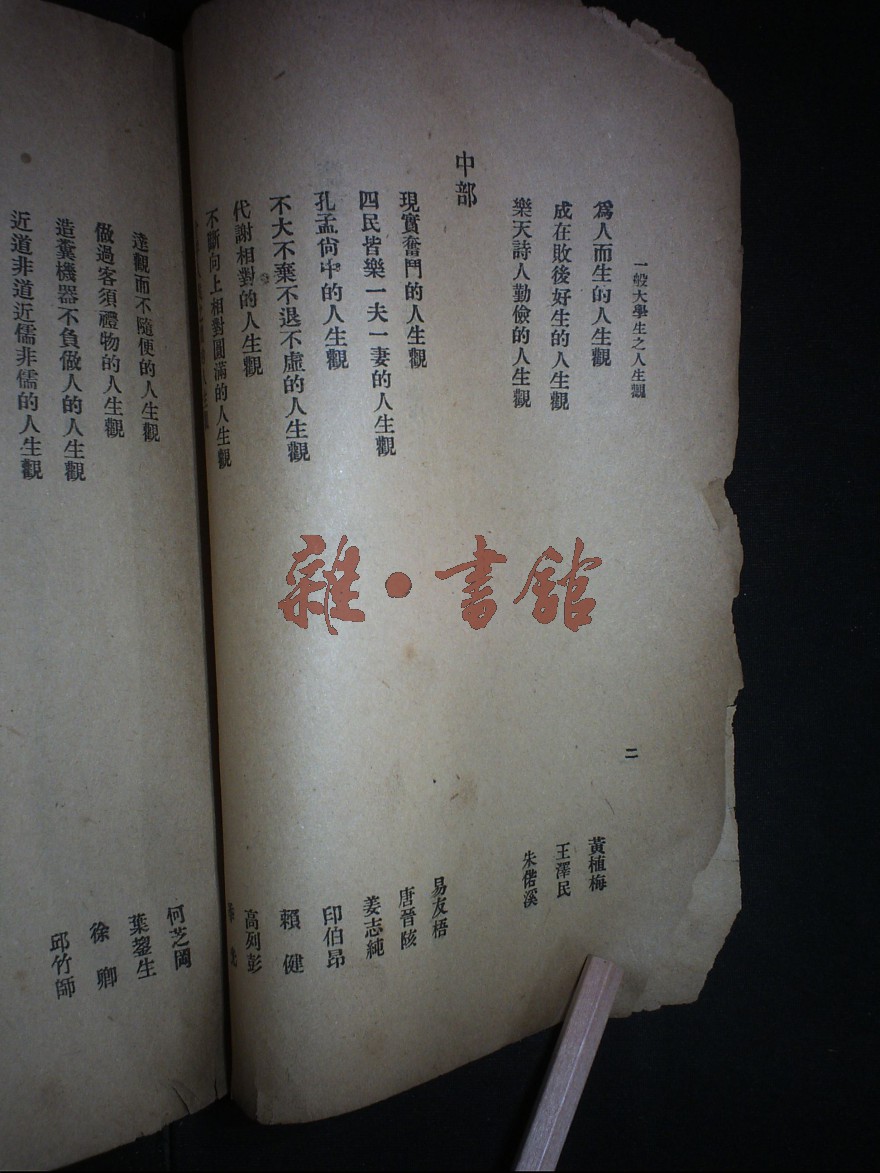 一般大學生之人生觀
二
為人而生的人生觀
黃植梅
成在敗後好生的人生觀
王澤民
樂天詩人勤儉的人生觀
朱偌溪
中部
現實奮鬥的人生觀
易友梧
四民皆樂一夫一妻的人生觀
唐晉陔
孔孟尙中的人生觀
姜志純
不大不棄不退不虛的人生觀
印伯昂
代謝相對的人生觀
賴健
不斷向上相對圓滿的人生觀
高列彭
人生觀
達觀而不隨便的人生觀
何芝岡
做過客須禮物的人生觀
葉鋆生
造糞機器不負做人的人生觀
徐卿
近道非道近儒非儒的人生觀
邱竹師
雜·書館